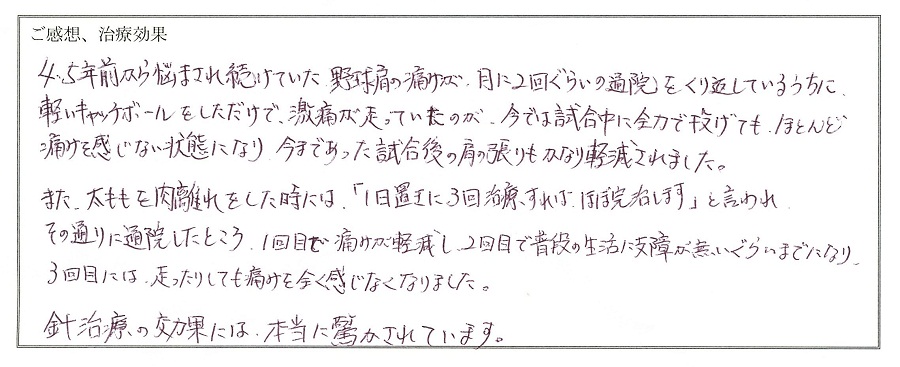 ご感想、治療効果
4、5年前から悩まされ続けていた野球肩の痛みが、月に2回ぐらいの通院をくり返しているうちに、
軽いキャッチボールをしただけで、激痛が走っていたのが、今では試合中に全力で投げても、ほとんど
痛みを感じない状態になり、今まであった試合後の肩の張りもかなり軽減されました。
また、太ももを肉離れをした時には、「1日置きに3回治療すれば、ほぼ完治します」と言われ、
その通りに通院したところ、1回目で痛みが軽減し、2回目で普段の生活に支障が無いぐらいまでになり、
3回目には、走ったりしても痛みを全く感じなくなりました。
針治療の効果には、本当に驚かされています。